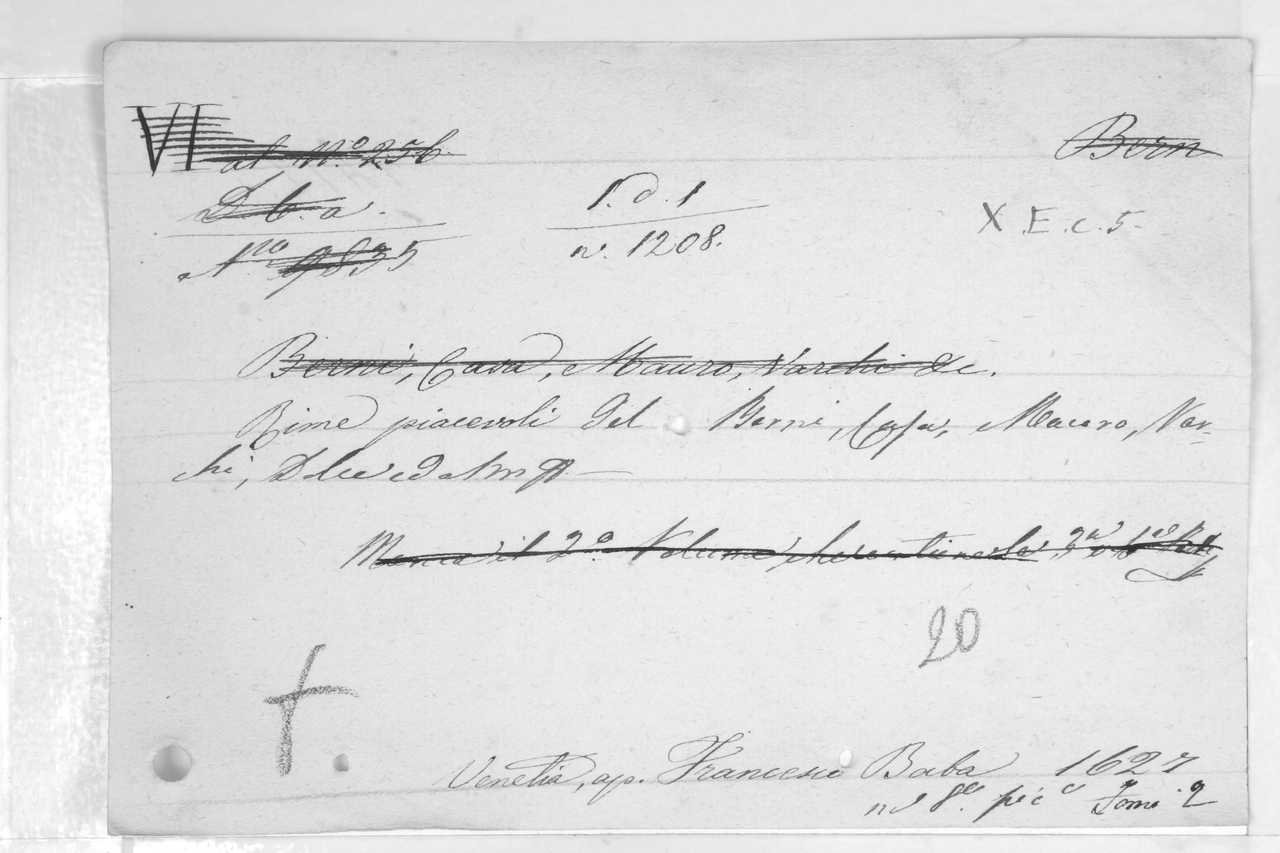 VI al N.º 256. Bern
D. b. a. 1. d. 1 X E.c.5-
N.ro 9835 n. 1208.
Berni, Casa, Mauro, Varchi &c.
Rime piacevoli del Berni, Casa, Mauro, Var=
chi, Dolce ed altri
Manca il 2º Volume, che contiene la 2ª
20
†
Venetia, ap. Francesco Baba 1627
in 8º picº Tomi 2